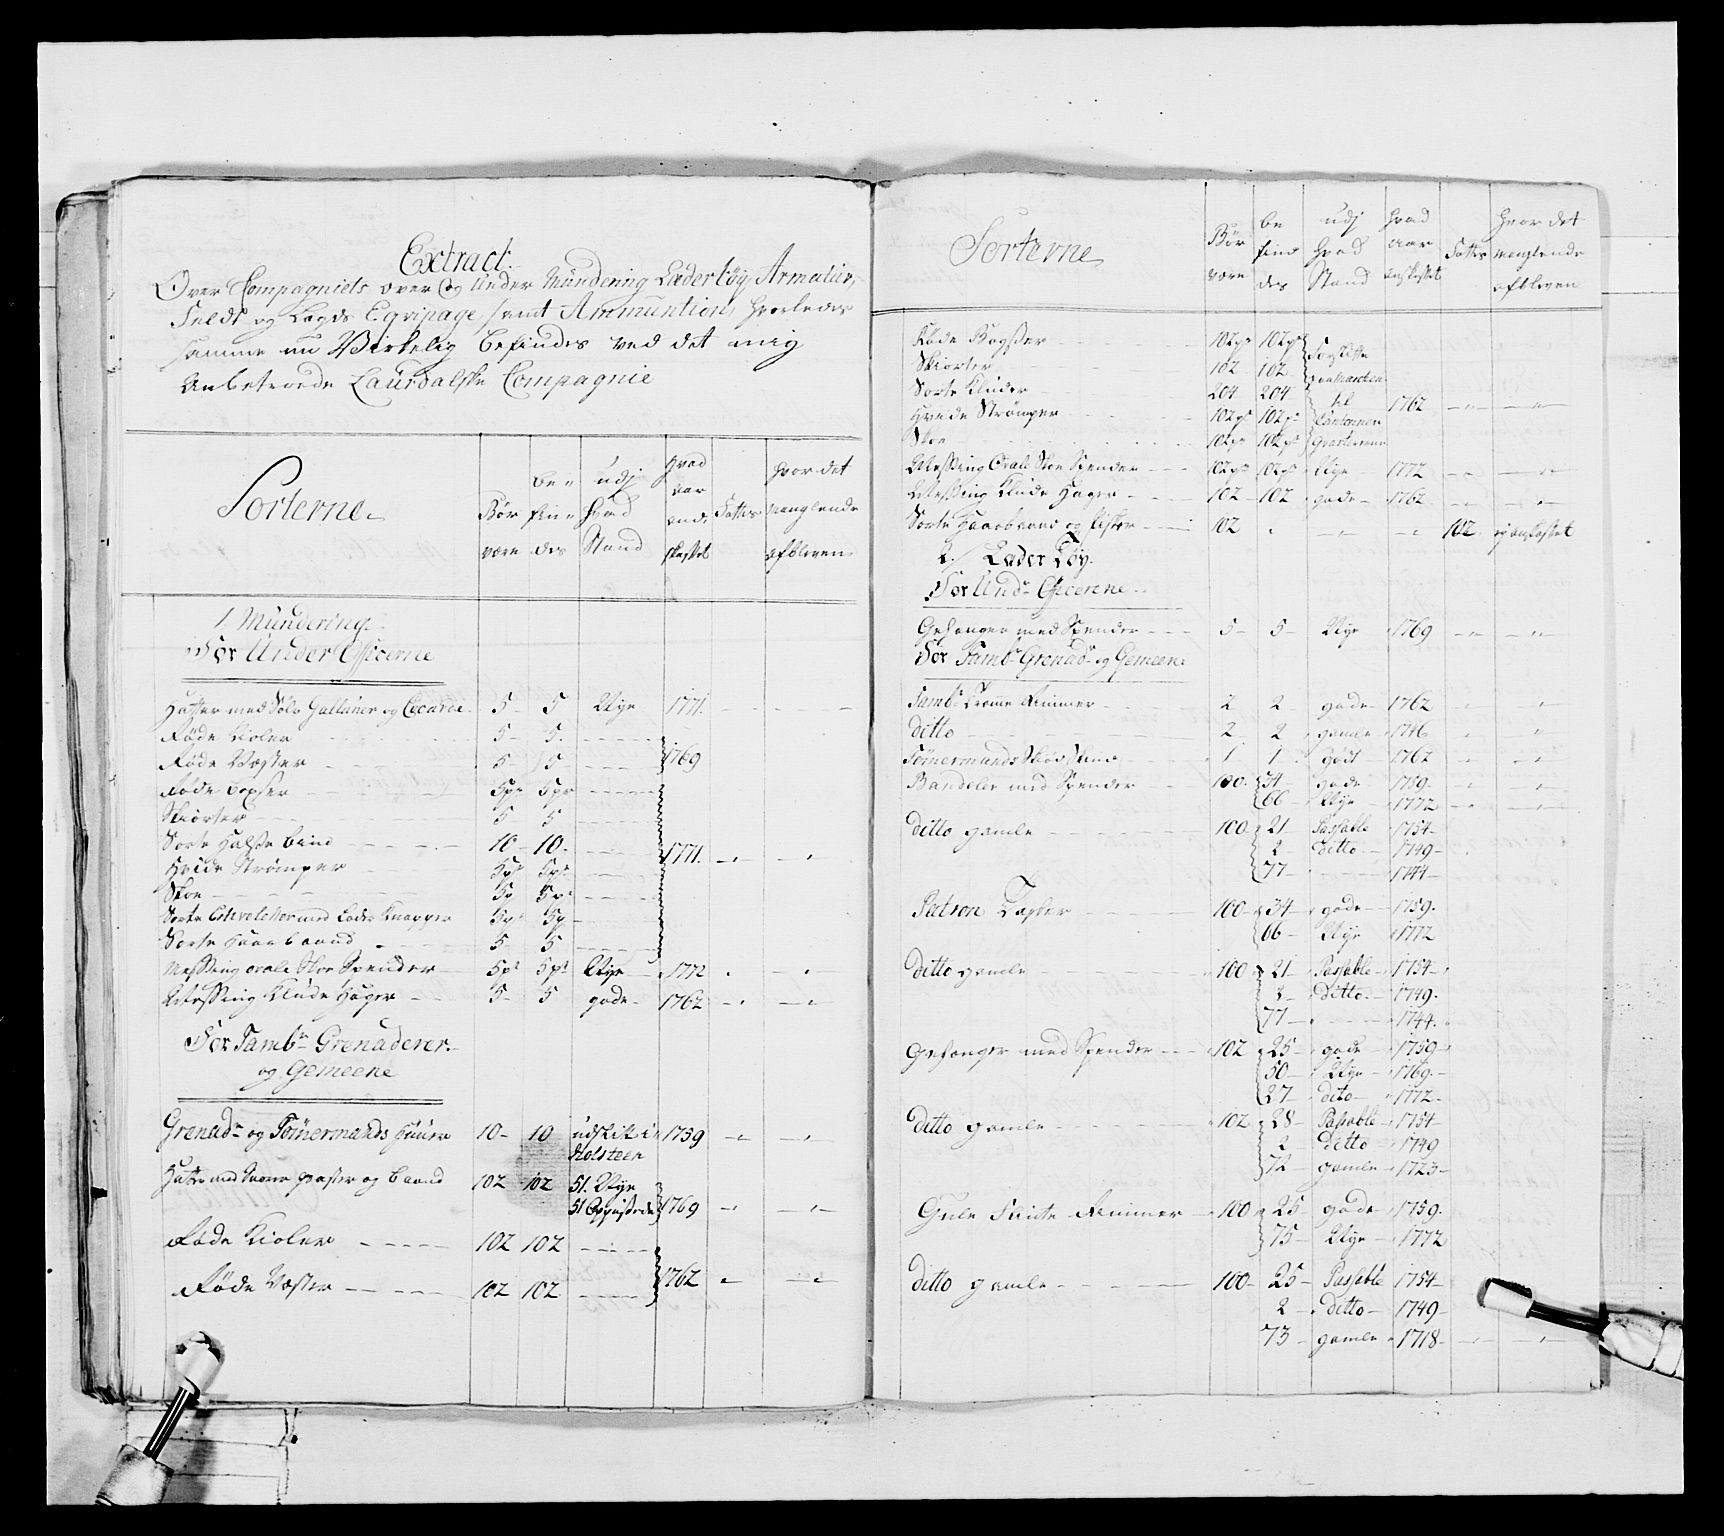 Extract.
Over Compagniets over og Under Mündering Lædertöy, Armatür,
Feldt og Lægds Eqvipage, samt Ammuntion, hvorledes
samme nu Virkelig befindes ved det mig
Anbetroede Laurdalske Compagnie
Sorterne.
Bør være
be„ fin„ des
udj hvad Stand
hvad aar ans skaffet
Fattes
hvor det manglende afbleven
1. Mündering.
For Under Officerne
Hatter med Sölv Galluner og Cocarde. 5 - 5 Nye 1771.
Røde Kioler 5 - 5
Røde Væster 5 5 1769
Røde Boxser 5pr 5pr
Skiorter 5 5
Sorte Halsse bind 10 - 10 1771
Hvide Strömper 5pr 5pr
Skoe 5p 5p
Sorte Steveletter med Læder Knapper 5pr 5p
Sorte Haarbaand 5 5
Messing ovale Skoe Spender 5pr 5pr Nye 1772
Messing Klüde Hager 5 - 5 gode 1762
For Tambr Grenaderer
og Gemeene
Grenadr og Tömermands Huuer 10 - 10 udskikt i 1759
Holsteen
Hatte med Snorer qvaster og baand 102 102 51. Nye
51 Oppudsede 1769
Røde Kioler 102 102
Røde Væster 102 102 1762
Sorterne
Bør være
be find des
udj hvad Stand
hvad aar anskaffet
Fattes
hvor det manglende afbleven
Røde Boxser 102pr 102pr
Skiorter 102 102
Sorte Klüder 204 204 til 1762
Hvide Strömper 102pr 102pr Cantonner
Skoe 102pr 102pr Qvartererne
Messing Ovale Skoe Spender 102pr 102pr Nye 1772
Messing Klüde Hager 102 - 102 gode 1762
Sorte Haarbaand og Pisker 102 102 ej anskaffet
2. Læder Töy.
For Undr Officerene
Gehænger med Spender 5 - 5 - Nye 1769
For Tambr Grenadr og Gemeene
Tambr Tromme Rimmer 2 2 gode 1762
ditto 2 - 2 gamle 1746
Tömermands Skiödskind 1 1 godt 1762
Bandeler med Spender 100 34 gode 1759
66 Nye 1772
ditto gamle 100 21 Passable 1754
2 ditto 1749
77 1744
Patron Tasker 100 34 gode 1759.
66 Nye 1772
ditto gamle 100 21 Passable 1754
2 ditto 1749.
77 1744.
Gehænger med Spender 102 25 gode 1759
50 Nye 1769.
27 dito 1772
ditto gamle 102 28 Passable 1754
2 ditto 1749
72 gamle 1723
Gule Flinte Rimmer 100 25 gode 1759.
75 Nye 1772
ditto gamle 100 25 Passable 1754
2 ditto 1749
73 gamle 1718